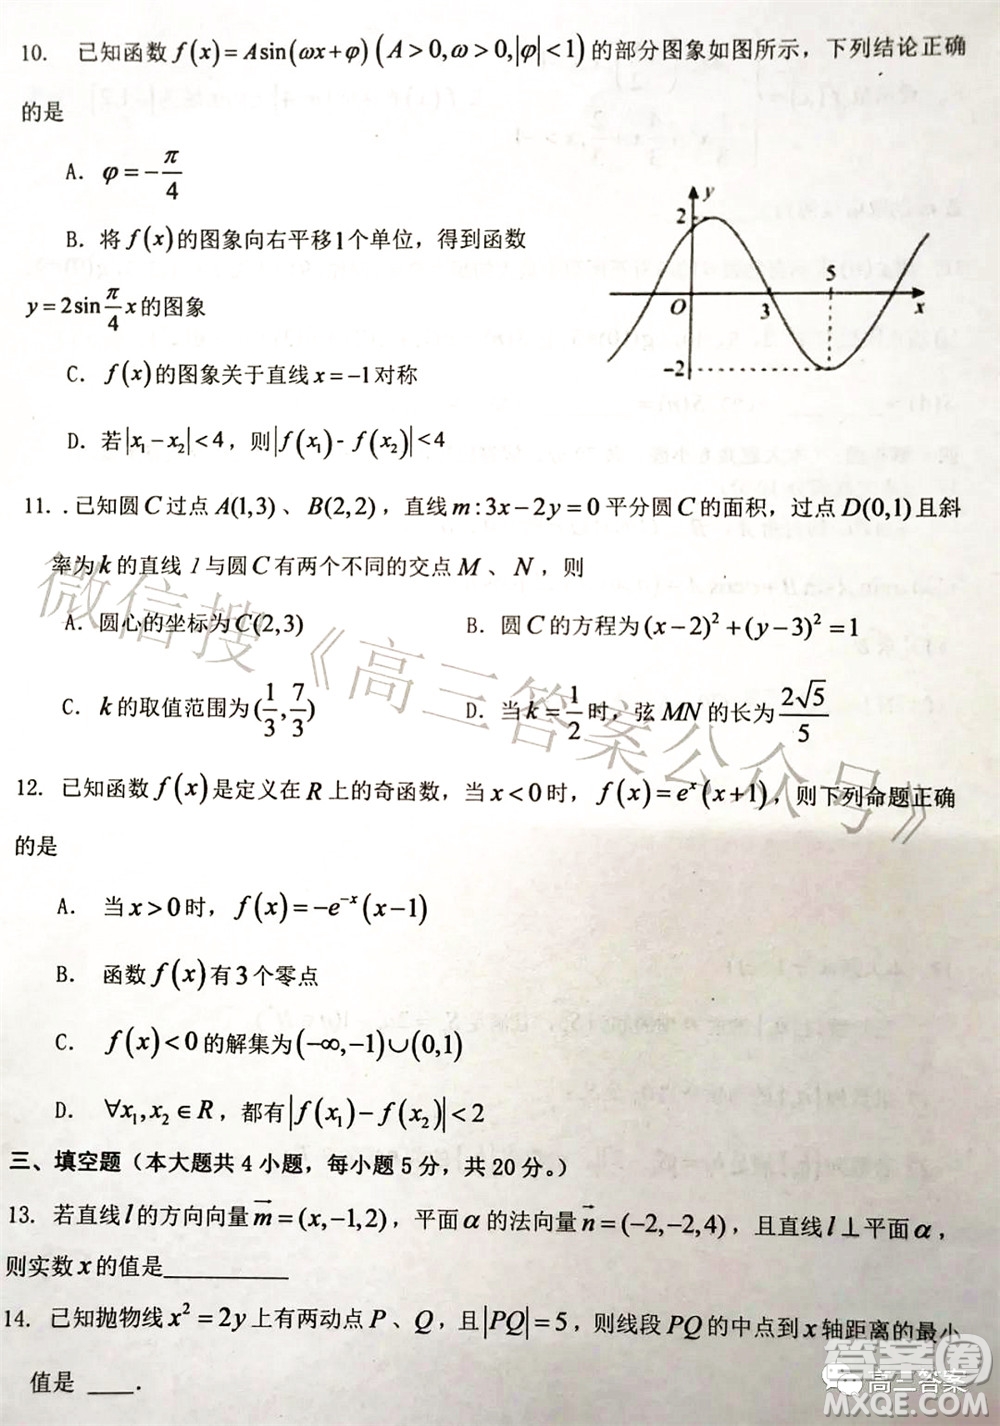 10. 已知函数 f(x)=Asin(ωx+φ)(A>0,ω>0,|φ|<1)的部分图象如图所示，下列结论正确
的是
A. φ=-π/4
B. 将 f(x)的图象向右平移1个单位，得到函数
y=2sin π/4 x的图象
C. f(x)的图象关于直线 x=-1对称
D. 若|x₁-x₂|<4，则|f(x₁)-f(x₂)|<4
y
2
5
O
3
x
-2
11. .已知圆C过点A(1,3)、B(2,2)，直线m:3x-2y=0平分圆C的面积，过点D(0,1)且斜
率为k的直线 l 与圆C有两个不同的交点M、N，则
A. 圆心的坐标为C(2,3) B. 圆C的方程为(x-2)²+(y-3)²=1
C. k的取值范围为(1/3,7/3) D. 当k=1/2时，弦MN的长为2√5/5
12. 已知函数f(x)是定义在R上的奇函数，当x<0时，f(x)=eˣ(x+1)，则下列命题正确
的是
A. 当x>0时，f(x)=-e⁻ˣ(x-1)
B. 函数f(x)有3个零点
C. f(x)<0的解集为(-∞,-1)∪(0,1)
D. ∀x₁,x₂∈R，都有|f(x₁)-f(x₂)|<2
三、填空题（本大题共4小题，每小题5分，共20分。）
13. 若直线l的方向向量m=(x,-1,2)，平面α的法向量n=(-2,-2,4)，且直线l⊥平面α，
则实数x的值是__________
14. 已知抛物线x²=2y上有两动点P、Q，且|PQ|=5，则线段PQ的中点到x轴距离的最小
值是 ___.
微信搜《高三答案公众号》
答案圈
高三答案
MXQE.COM